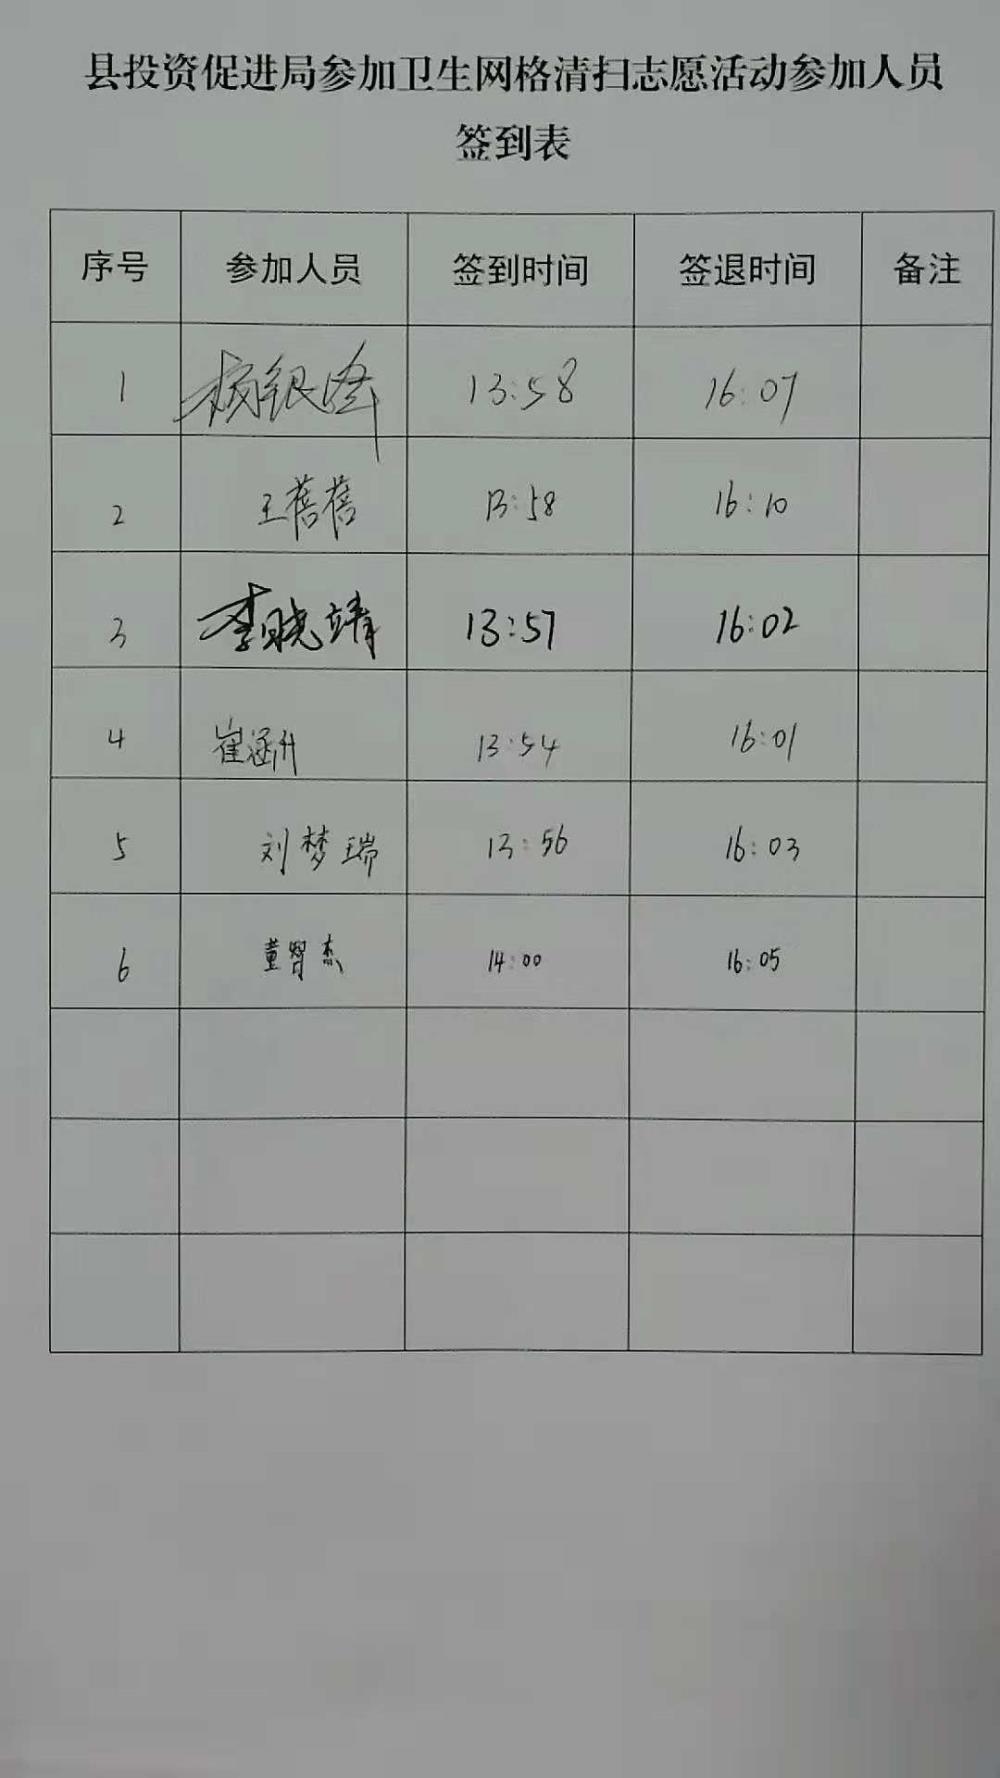 县投资促进局参加卫生网格清扫志愿活动参加人员
签到表
序号 参加人员 签到时间 签退时间 备注
1 杨银峰 13:58 16:07
2 王蓓蓓 13:58 16:10
3 李晓靖 13:57 16:02
4 崔涵 13:54 16:01
5 刘梦瑞 13:56 16:03
6 董智杰 14:00 16:05